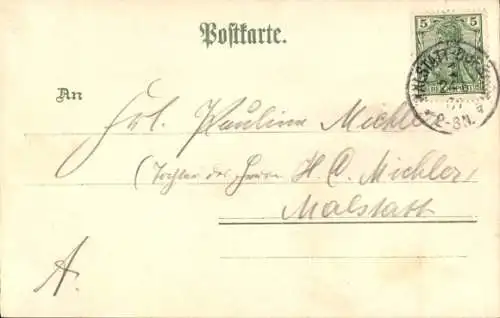 Postkarte.
5 5
MALSTATT-BUR
2-3N.
An
Frl. Pauline Michler
(Tochter des Herrn H. C. Michler)
Malstatt
A.